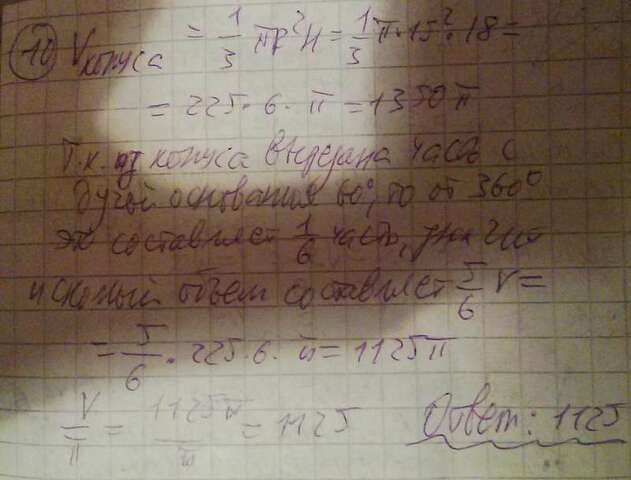 10 V конуса = 1/3 πR²H = 1/3 π·15²·18 =
= 225·6·π = 1350π
Т.к. из конуса вырезана часть с
дугой основания 60°, то от 360°
это составляет 1/6 часть, значит
искомый объем составляет 5/6 V =
= 5/6 · 225·6·π = 1125π
V/π = 1125π/π = 1125 Ответ: 1125